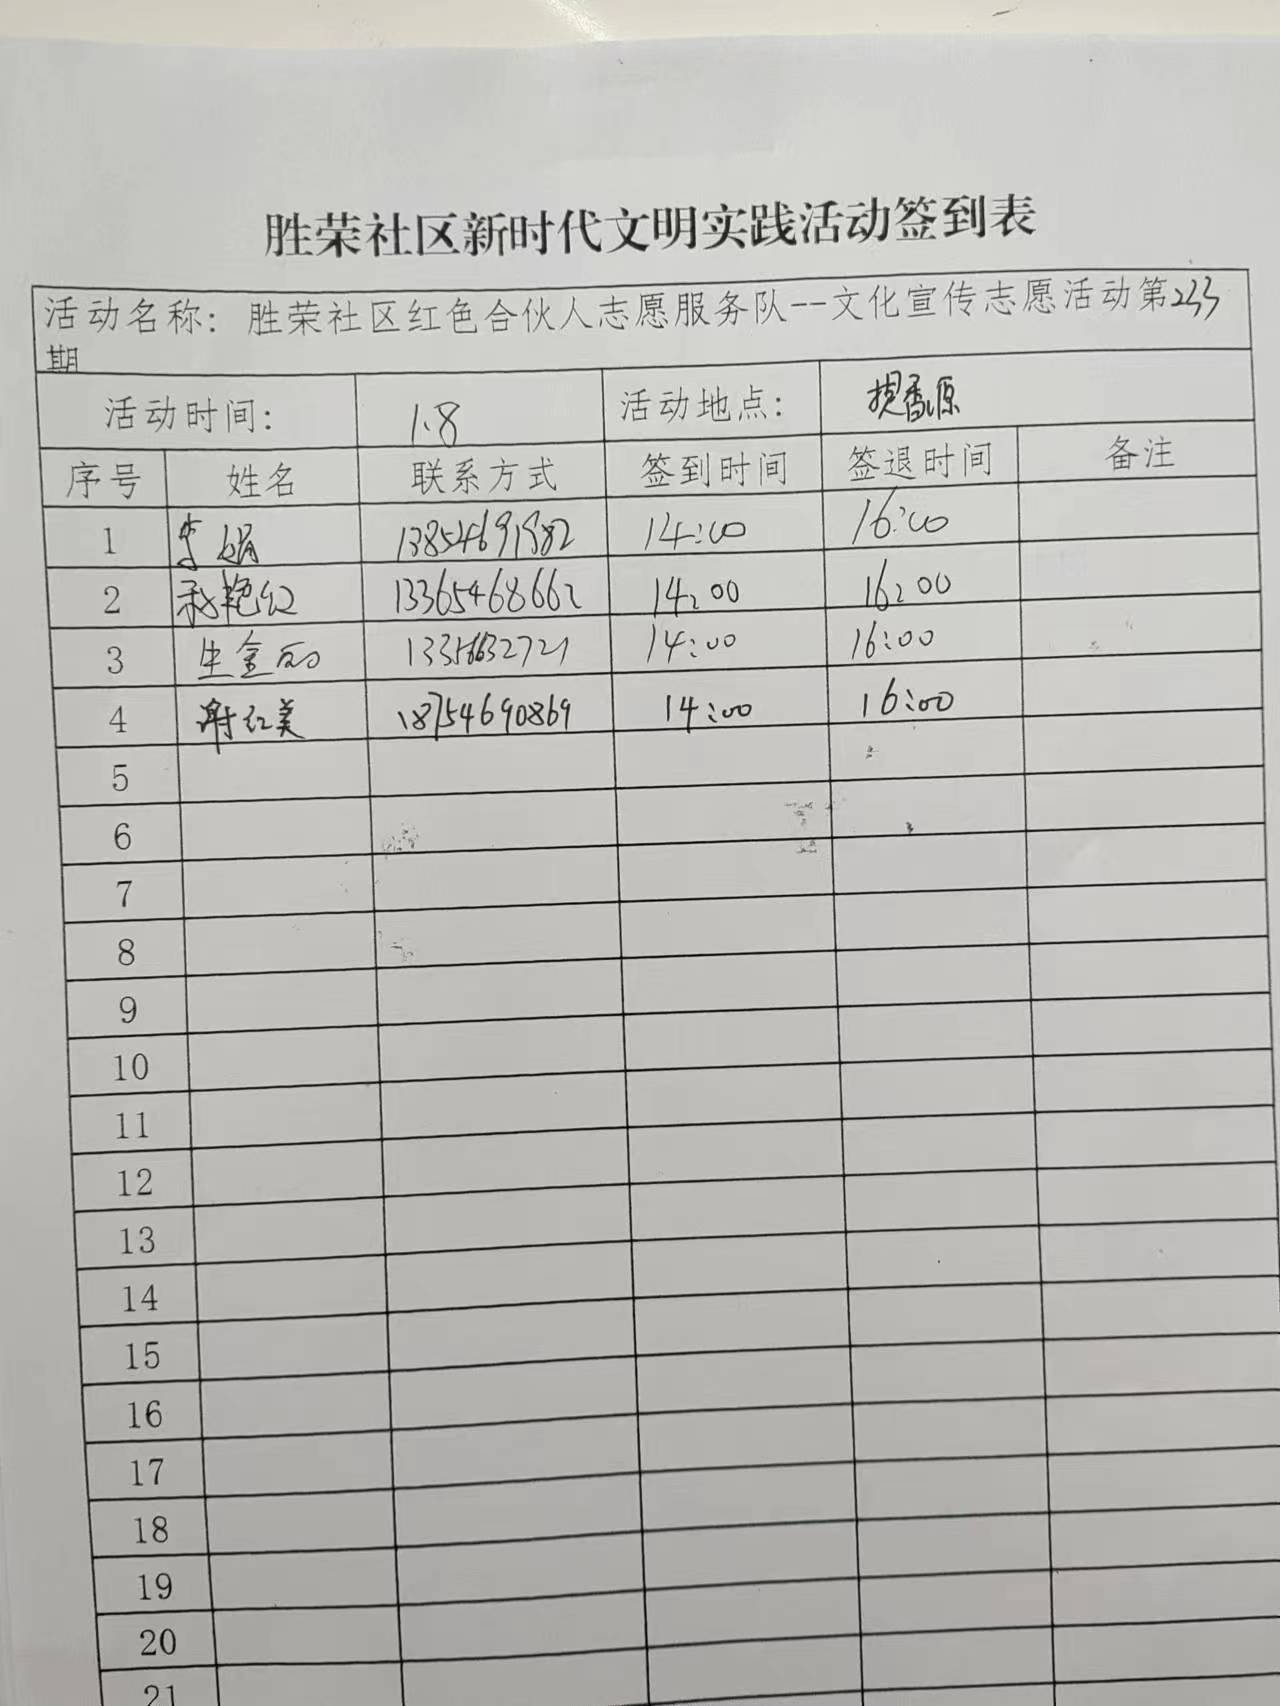 胜荣社区新时代文明实践活动签到表
活动名称：胜荣社区红色合伙人志愿服务队--文化宣传志愿活动第233
期
活动时间： 1.8 活动地点： 香源
序号 姓名 联系方式 签到时间 签退时间 备注
1 李娟 13854691982 14:00 16:00
2 艳红 13365468662 14:00 16:00
3 生金丽 14:00 16:00
4 谢红美 18754690869 14:00 16:00
5
6
7
8
9
10
11
12
13
14
15
16
17
18
19
20
21